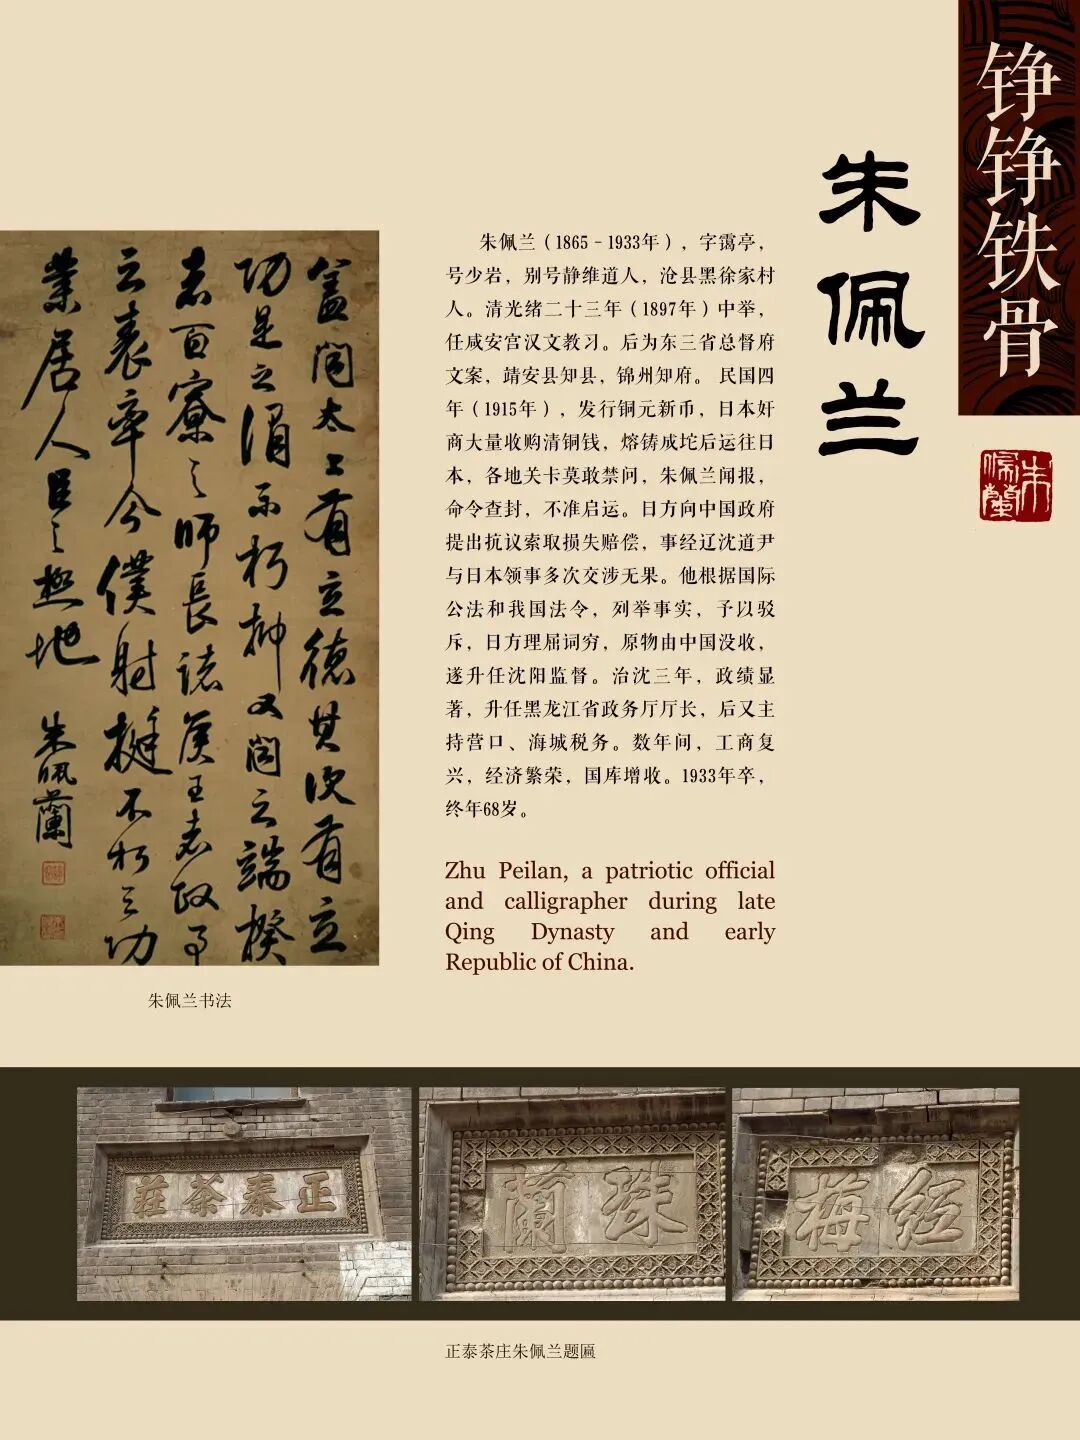 铮铮铁骨
朱佩兰
朱佩蘭
朱佩兰（1865-1933年），字霭亭，
号少岩，别号静维道人，沧县黑徐家村
人。清光绪二十三年（1897年）中举，
任咸安宫汉文教习。后为东三省总督府
文案，靖安县知县，锦州知府。 民国四
年（1915年），发行铜元新币，日本奸
商大量收购清铜钱，熔铸成坨后运往日
本，各地关卡莫敢禁问，朱佩兰闻报，
命令查封，不准启运。日方向中国政府
提出抗议索取损失赔偿，事经辽沈道尹
与日本领事多次交涉无果。他根据国际
公法和我国法令，列举事实，予以驳
斥，日方理屈词穷，原物由中国没收，
遂升任沈阳监督。治沈三年，政绩显
著，升任黑龙江省政务厅厅长，后又主
持营口、海城税务。数年间，工商复
兴，经济繁荣，国库增收。1933年卒，
终年68岁。
Zhu Peilan, a patriotic official
and calligrapher during late
Qing Dynasty and early
Republic of China.
盖闻太上有立德其次有立
功是之谓不朽抑又闻之端揆
者百寮之师長诸侯王者政事
之表率今僕射挺不朽之功
業居人臣之極地
朱佩蘭
朱佩兰书法
正泰茶莊
珠蘭
經梅
正泰茶庄朱佩兰题匾